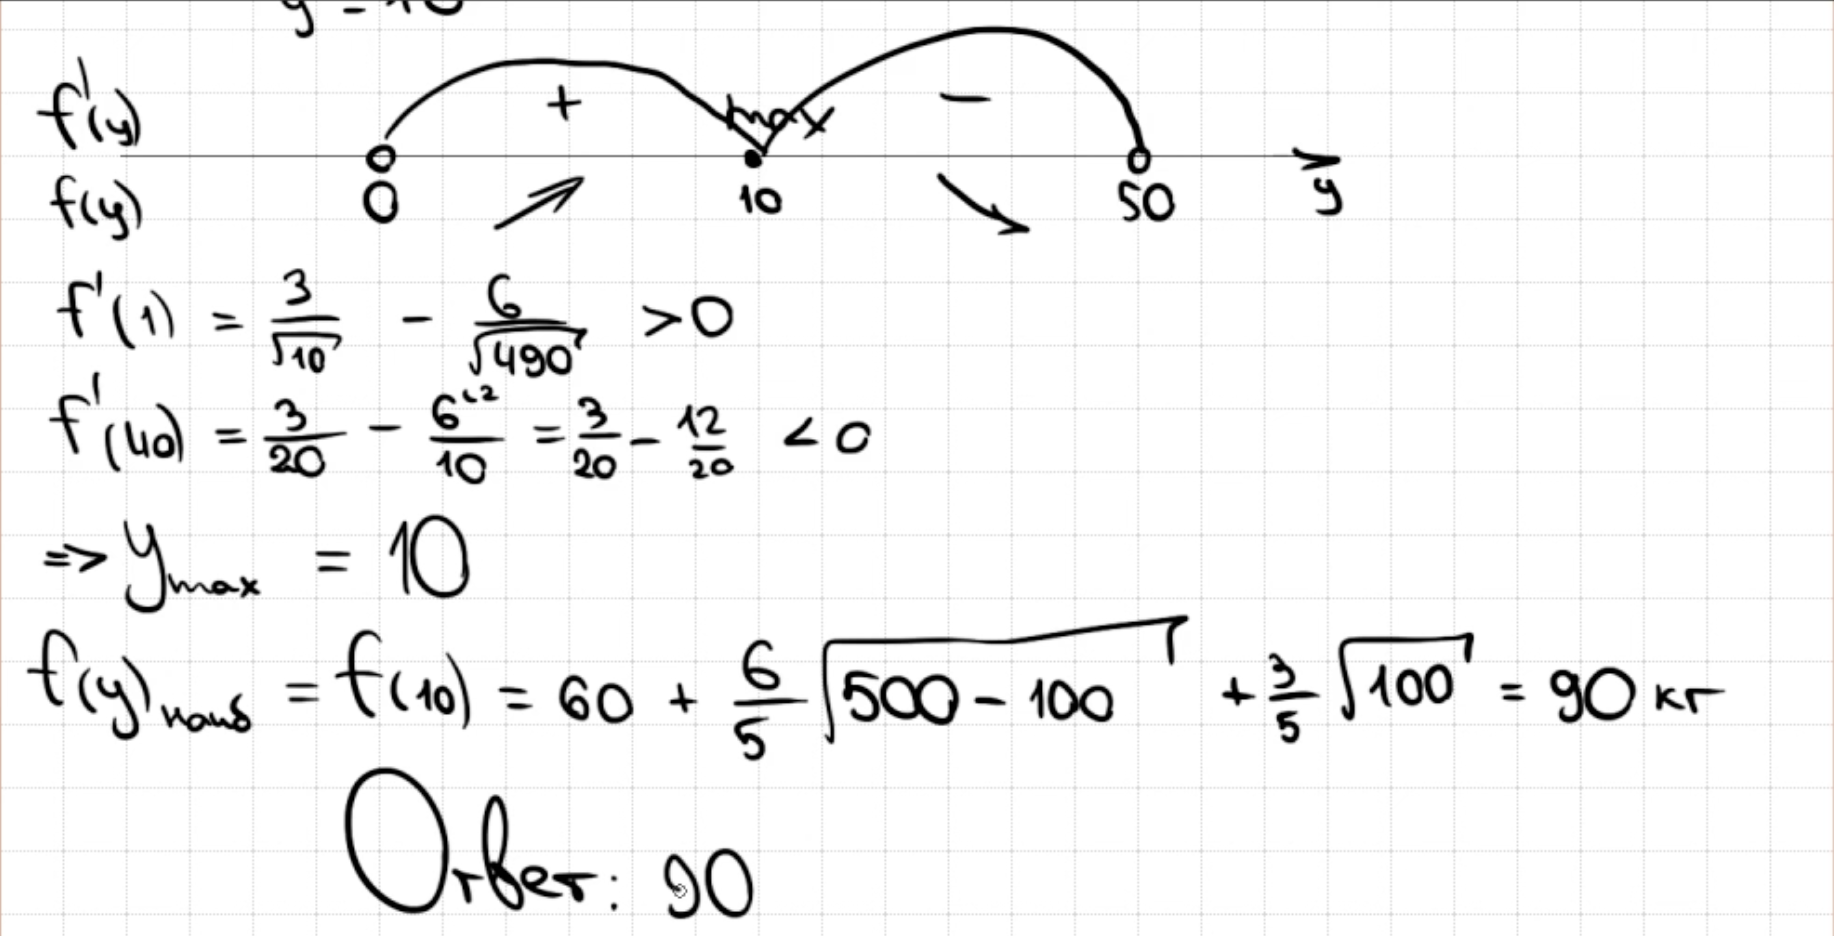 y = 10
f'(y) + max −
0 10 50 y
f(y)
f'(1) = 3/√10 − 6/√490 > 0
f'(40) = 3/20 − 6^(2/10 = 3/20 − 12/20 < 0
=> y max = 10
f(y) наиб = f(10) = 60 + 6/5 √(500 − 100) + 3/5 √100 = 90 кг
Ответ: 90